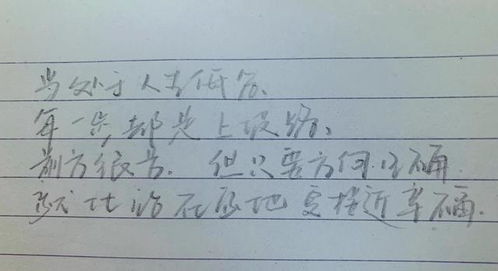 当处于人生低谷、
每一步,都是上坡路、
前方很苦. 但只要方向正确
就比站在原地更接近幸福.